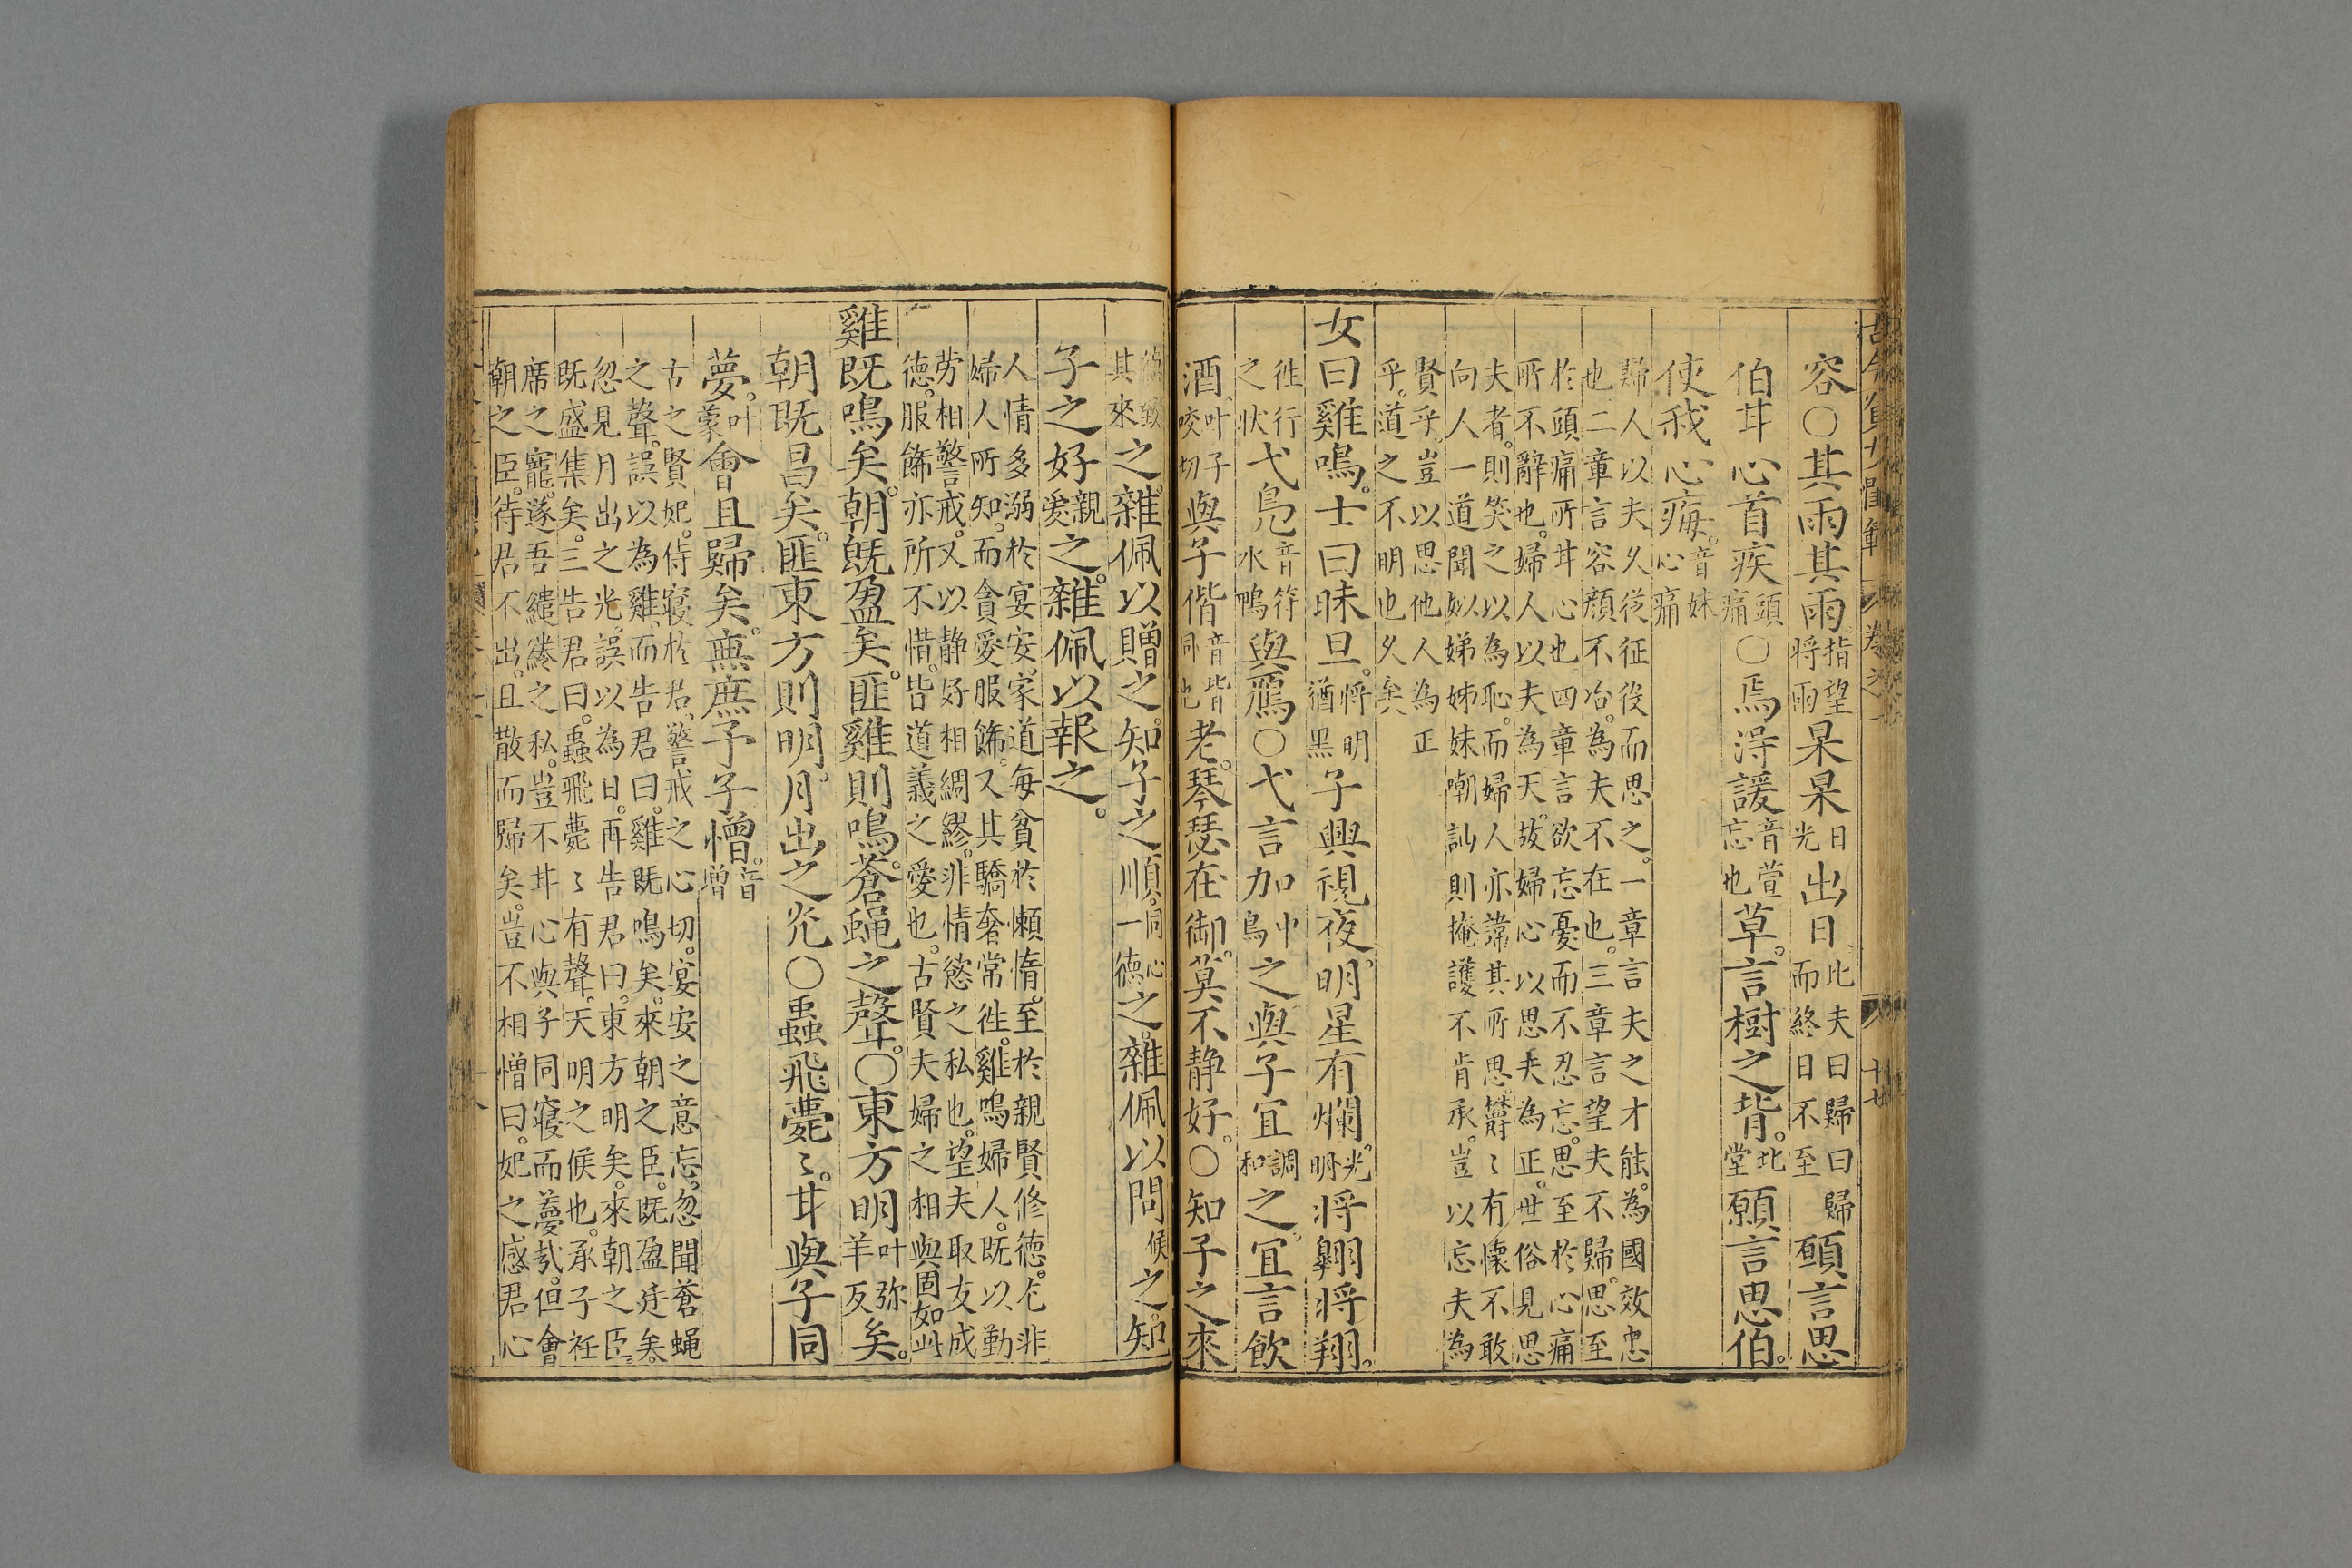 容○其雨其雨指望將雨杲杲日光出日此夫曰歸曰歸而終日不至願言思
伯甘心首疾頭痛○焉淂諼音萱忘也草。言樹之背。北堂願言思伯。
使我心痗。音妹心痛
歸人以夫久從征役而思之。一章言夫之才能。為國效忠
也二章言容顔不冶。為夫不在也。三章言望夫不歸。思至
於頭痛所甘心也。四章言欲忘憂而不忍忘。思至於心痛
所不辭也。婦人以夫為天。故婦心以思夫為正。世俗見思
夫者。則笑之以為恥。而婦人亦諱其所思。欝〻有懷不敢
向人一道聞姒娣姊妹嘲訕則掩護不肯承。豈以忘夫為
賢乎。豈以思他人為正
乎。道之不明也久矣
女曰雞鳴。士曰昧旦。將明猶黑子興視夜。明星有爛。光明將翱將翔。
徃行之狀弋鳧音符水鴨與鴈○弋言加中鳥之與子宜調和之。宜言飲
酒叶子咬切與子偕音皆同也老。琴瑟在御。莫不静好。○知子之來
德致其來之。雜佩以贈之。知子之順。同心一德之。雜佩以問候之。知
子之好親愛之。雜佩以報之。
人情多溺於宴安。家道每貧於懶惰。至於親賢修德。尤非
婦人所知。而貪愛服飾。又其驕奢常徃。雞鳴婦人。既以勤
勞相警戒。又以静好相綢繆。非情慾之私也。望夫取友成
德。服飾亦所不惜。皆道義之愛也。古賢夫婦之相與固如此
雞既鳴矣。朝既盈矣。匪雞則鳴。蒼蝇之聲。○東方明叶弥羊反矣。
朝既昌矣。匪東方則明。月出之光○蟲飛薨〻。甘與子同
夢。叶蒙會且歸矣。無庶予子憎。音增
古之賢妃。侍寝於君。警戒之心切。宴安之意忘。忽聞蒼蝇
之聲。誤以為雞。而告君曰。雞既鳴矣。來朝之臣。既盈廷矣。
忽見月出之光。誤以為日。再告君曰。東方明矣。來朝之臣。
既盛集矣。三告君曰。蟲飛薨〻有聲。天明之候也。承子衽
席之寵。遂吾繾綣之私。豈不甘心與子同寝而夢哉。但會
朝之臣。待君不出。且散而歸矣。豈不相憎曰。妃之惑君心